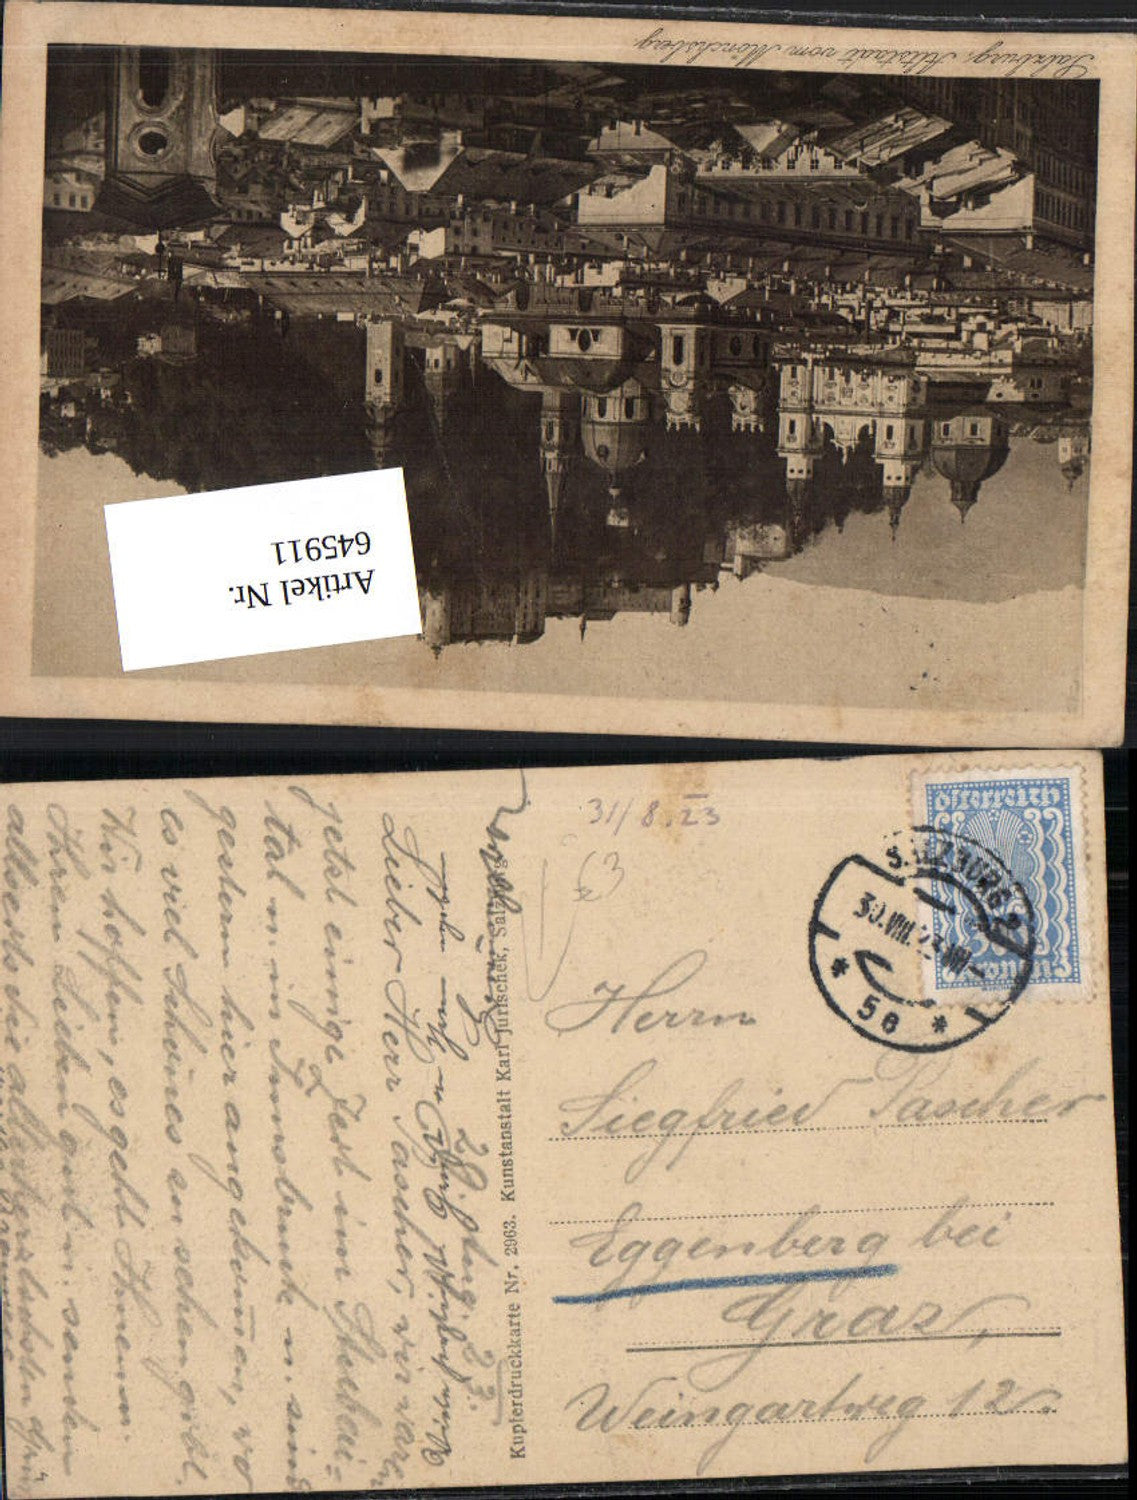 Salzburg, Altstadt vom Mönchsberg.
Artikel Nr.
645911
31/8.23
63
Österreich
SALZBURG 2
30.VIII.23
* 5e *
Herrn
Siegfried Pascher
Eggenberg bei
Graz,
Weingartweg 12.
Kupferdruckkarte Nr. 2963. Kunstanstalt Karl Jurischek, Salzburg.
Salzburg 29. Aug. 23.
Lieber Herr Pascher, wir waren
jetzt einige Zeit im Stubai=
tal u. in Innsbruck u. sind
gestern hier angekommen, wo
es viel Schönes zu sehen gibt.
Wir hoffen, es geht Ihnen u.
Ihren Lieben gut u. senden
allseits die allerherzlichsten Grüße